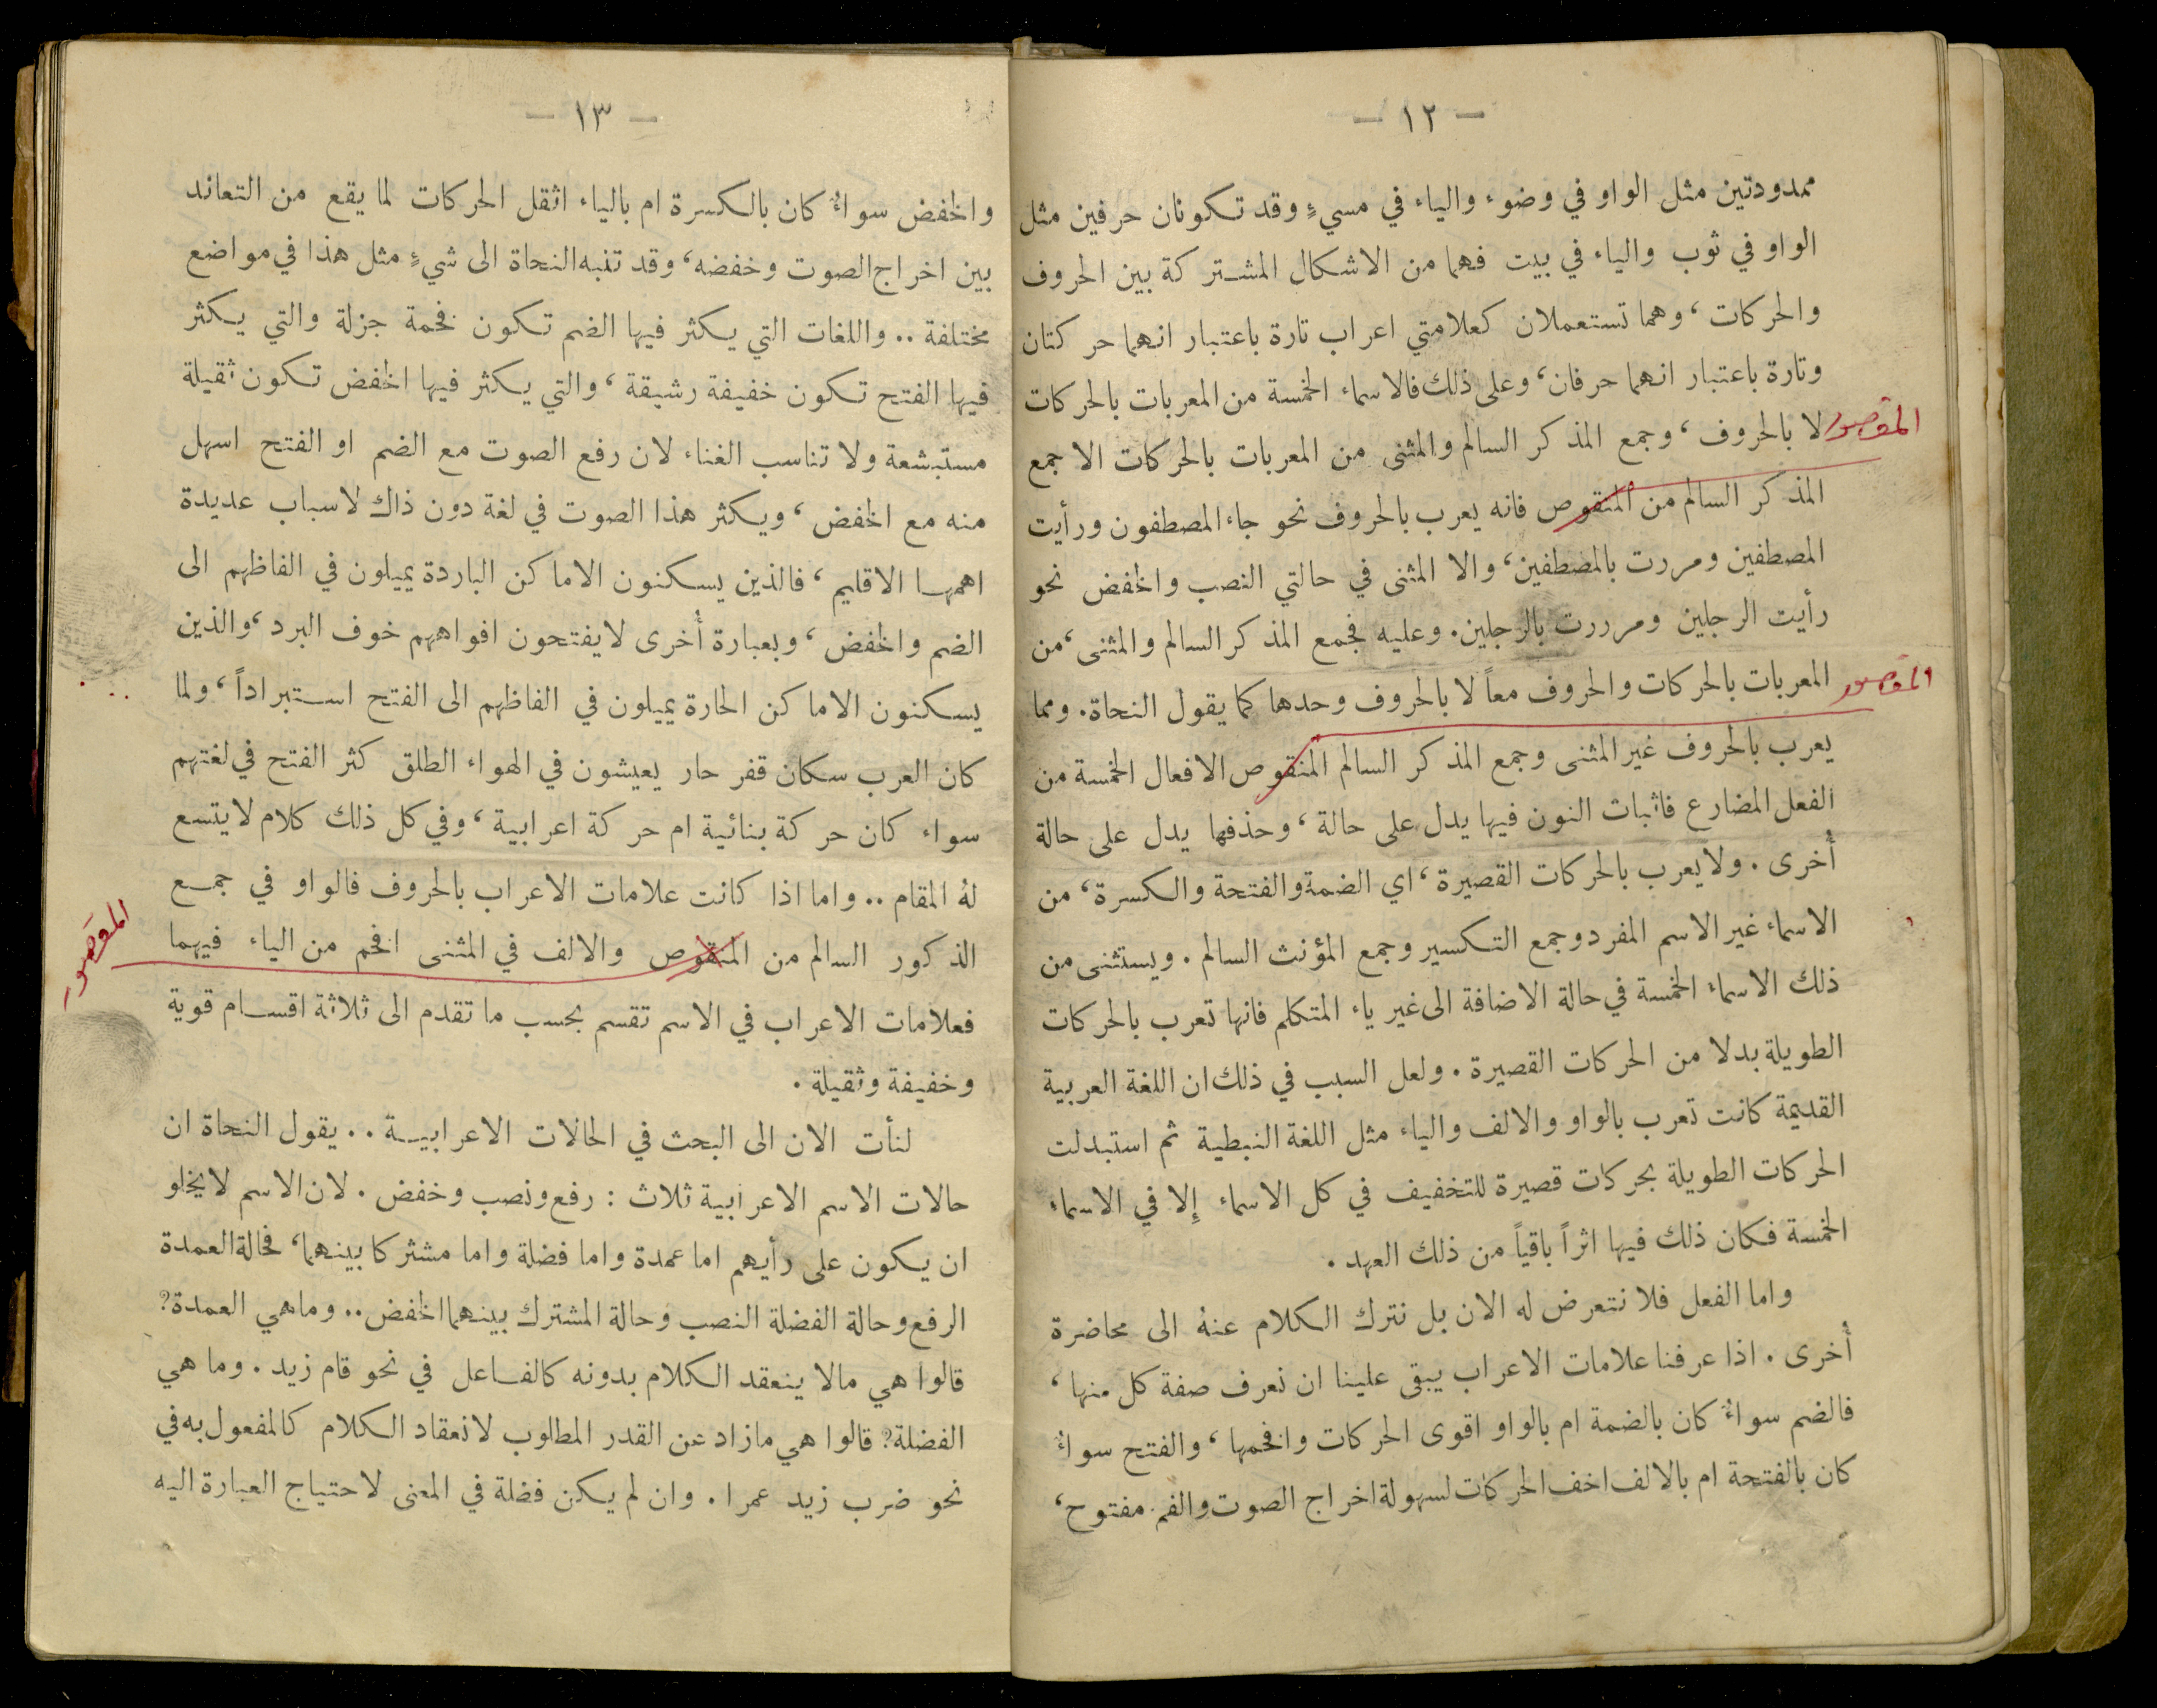 — ١٢ —
ممدودتين مثل الواو في وضوء والياء في مسيءٍ وقد تكونان حرفين مثل
الواو في ثوب والياء في بيت فهما من الاشكال المشتركة بين الحروف
والحركات، وهما تستعملان كعلامتي اعراب تارة باعتبار انهما حركتان
وتارة باعتبار انهما حرفان، وعلى ذلك فالاسماء الخمسة من المعربات بالحركات
المقصور
لا بالحروف، وجمع المذكر السالم والمثنى من المعربات بالحركات الا جمع
المذكر السالم من المنقوص فانه يعرب بالحروف نحو جاء المصطفون ورأيت
المصطفين ومررت بالمصطفين، والا المثنى في حالتي النصب والخفض نحو
رأيت الرجلين ومرررت بالرجلين. وعليه فجمع المذكر السالم والمثنى، من
المقصور
المعربات بالحركات والحروف معاً لا بالحروف وحدها كما يقول النحاة. ومما
يعرب بالحروف غير المثنى وجمع المذكر السالم المنقوص الافعال الخمسة من
الفعل المضارع فاثبات النون فيها يدل على حالة، وحذفها يدل على حالة
أخرى. ولا يعرب بالحركات القصيرة، اي الضمة والفتحة والكسرة، من
الاسماء غير الاسم المفرد وجمع التكسير وجمع المؤنث السالم. ويستثنى من
ذلك الاسماء الخمسة في حالة الاضافة الى غير ياء المتكلم فانها تعرب بالحركات
الطويلة بدلا من الحركات القصيرة. ولعل السبب في ذلك ان اللغة العربية
القديمة كانت تعرب بالواو والالف والياء مثل اللغة النبطية ثم استبدلت
الحركات الطويلة بحركات قصيرة للتخفيف في كل الاسماء إلا في الاسماء
الخمسة فكان ذلك فيها اثراً باقياً من ذلك العهد.
واما الفعل فلا نتعرض له الان بل نترك الكلام عنهُ الى محاضرة
أخرى. اذا عرفنا علامات الاعراب يبقى علينا ان نعرف صفة كل منها،
فالضم سواءٌ كان بالضمة ام بالواو اقوى الحركات وافخمها، والفتح سواءٌ
كان بالفتحة ام بالالف اخف الحركات لسهولة اخراج الصوت والفم مفتوح،
— ١٣ —
والخفض سواءٌ كان بالكسرة ام بالياء اثقل الحركات لما يقع من التعاند
بين اخراج الصوت وخفضه، وقد تنبه النحاة الى شيءٍ مثل هذا في مواضع
مختلفة .. واللغات التي يكثر فيها الضم تكون فخمة جزلة والتي يكثر
فيها الفتح تكون خفيفة رشيقة، والتي يكثر فيها الخفض تكون ثقيلة
مستبشعة ولا تناسب الغناء لان رفع الصوت مع الضم او الفتح اسهل
منه مع الخفض، ويكثر هذا الصوت في لغة دون ذاك لاسباب عديدة
اهمها الاقليم، فالذين يسكنون الاماكن الباردة يميلون في الفاظهم الى
الضم والخفض، وبعبارة أخرى لا يفتحون افواههم خوف البرد، والذين
يسكنون الاماكن الحارة يميلون في الفاظهم الى الفتح استبراداً، ولما
كان العرب سكان قفر حار يعيشون في الهواء الطلق كثر الفتح في لغتهم
سواء كان حركة بنائية ام حركة اعرابية، وفي كل ذلك كلام لا يتسع
لهُ المقام .. واما اذا كانت علامات الاعراب بالحروف فالواو في جمع
الذكور السالم من المنقوص والالف في المثنى افخم من الياء فيهما
المقصور
فعلامات الاعراب في الاسم تقسم بحسب ما تقدم الى ثلاثة اقسام قوية
وخفيفة وثقيلة.
لنأت الان الى البحث في الحالات الاعرابية .. يقول النحاة ان
حالات الاسم الاعرابية ثلاث : رفع ونصب وخفض. لان الاسم لا يخلو
ان يكون على رأيهم اما عمدة واما فضلة واما مشتركا بينهما، فحالة العمدة
الرفع وحالة الفضلة النصب وحالة المشترك بينهما الخفض .. وما هي العمدة؟
قالوا هي مالا ينعقد الكلام بدونه كالفاعل في نحو قام زيد. وما هي
الفضلة؟ قالوا هي مازاد عن القدر المطلوب لانعقاد الكلام كالمفعول به في
نحو ضرب زيد عمرا. وان لم يكن فضلة في المعنى لاحتياج العبارة اليه